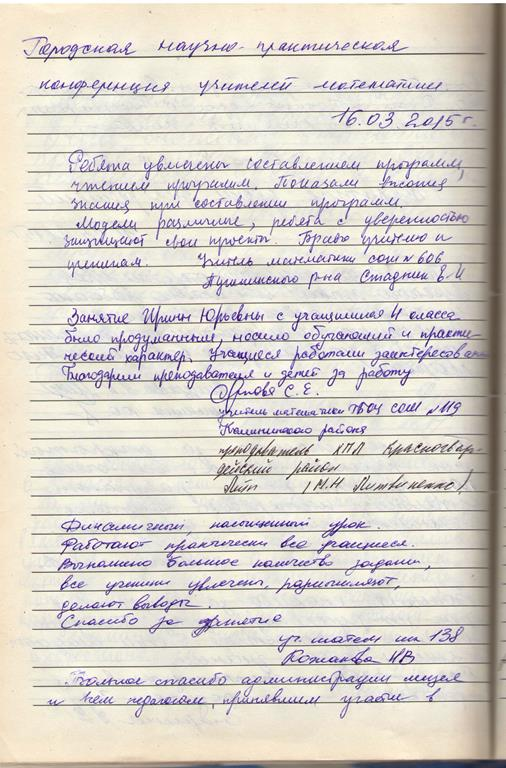 Городская научно-практическая
конференция учителей математики
16.03.2015г.
Ребята увлечены составлением программ,
чтением программ. Показали высокие
знания при составлении программ.
Модели различные, ребята с уверенностью
защищают свои проекты. Браво учителю и
ученикам. Учитель математики сош №606
Пушкинского р-на Стадник В.И
Занятие Ирины Юрьевны с учащимися 4 класса
было продуманным, носило обучающий и практи-
ческий характер. Учащиеся работали заинтересованно
Благодарим преподавателя и детей за работу
С.Е.
учитель математики ГБОУ сош №119
Калининского района
преподаватель Красногвар-
дейский район
/М.Н Литвиненко/
Динамичный, насыщенный урок.
Работают практически все учащиеся.
Выполнено большое количество заданий,
все ученики увлечены, размышляют,
делают выводы.
Спасибо за занятие
уч. матем шк 138
НВ
Большое спасибо администрации лицея
и всем педагогам, принявшим участие в